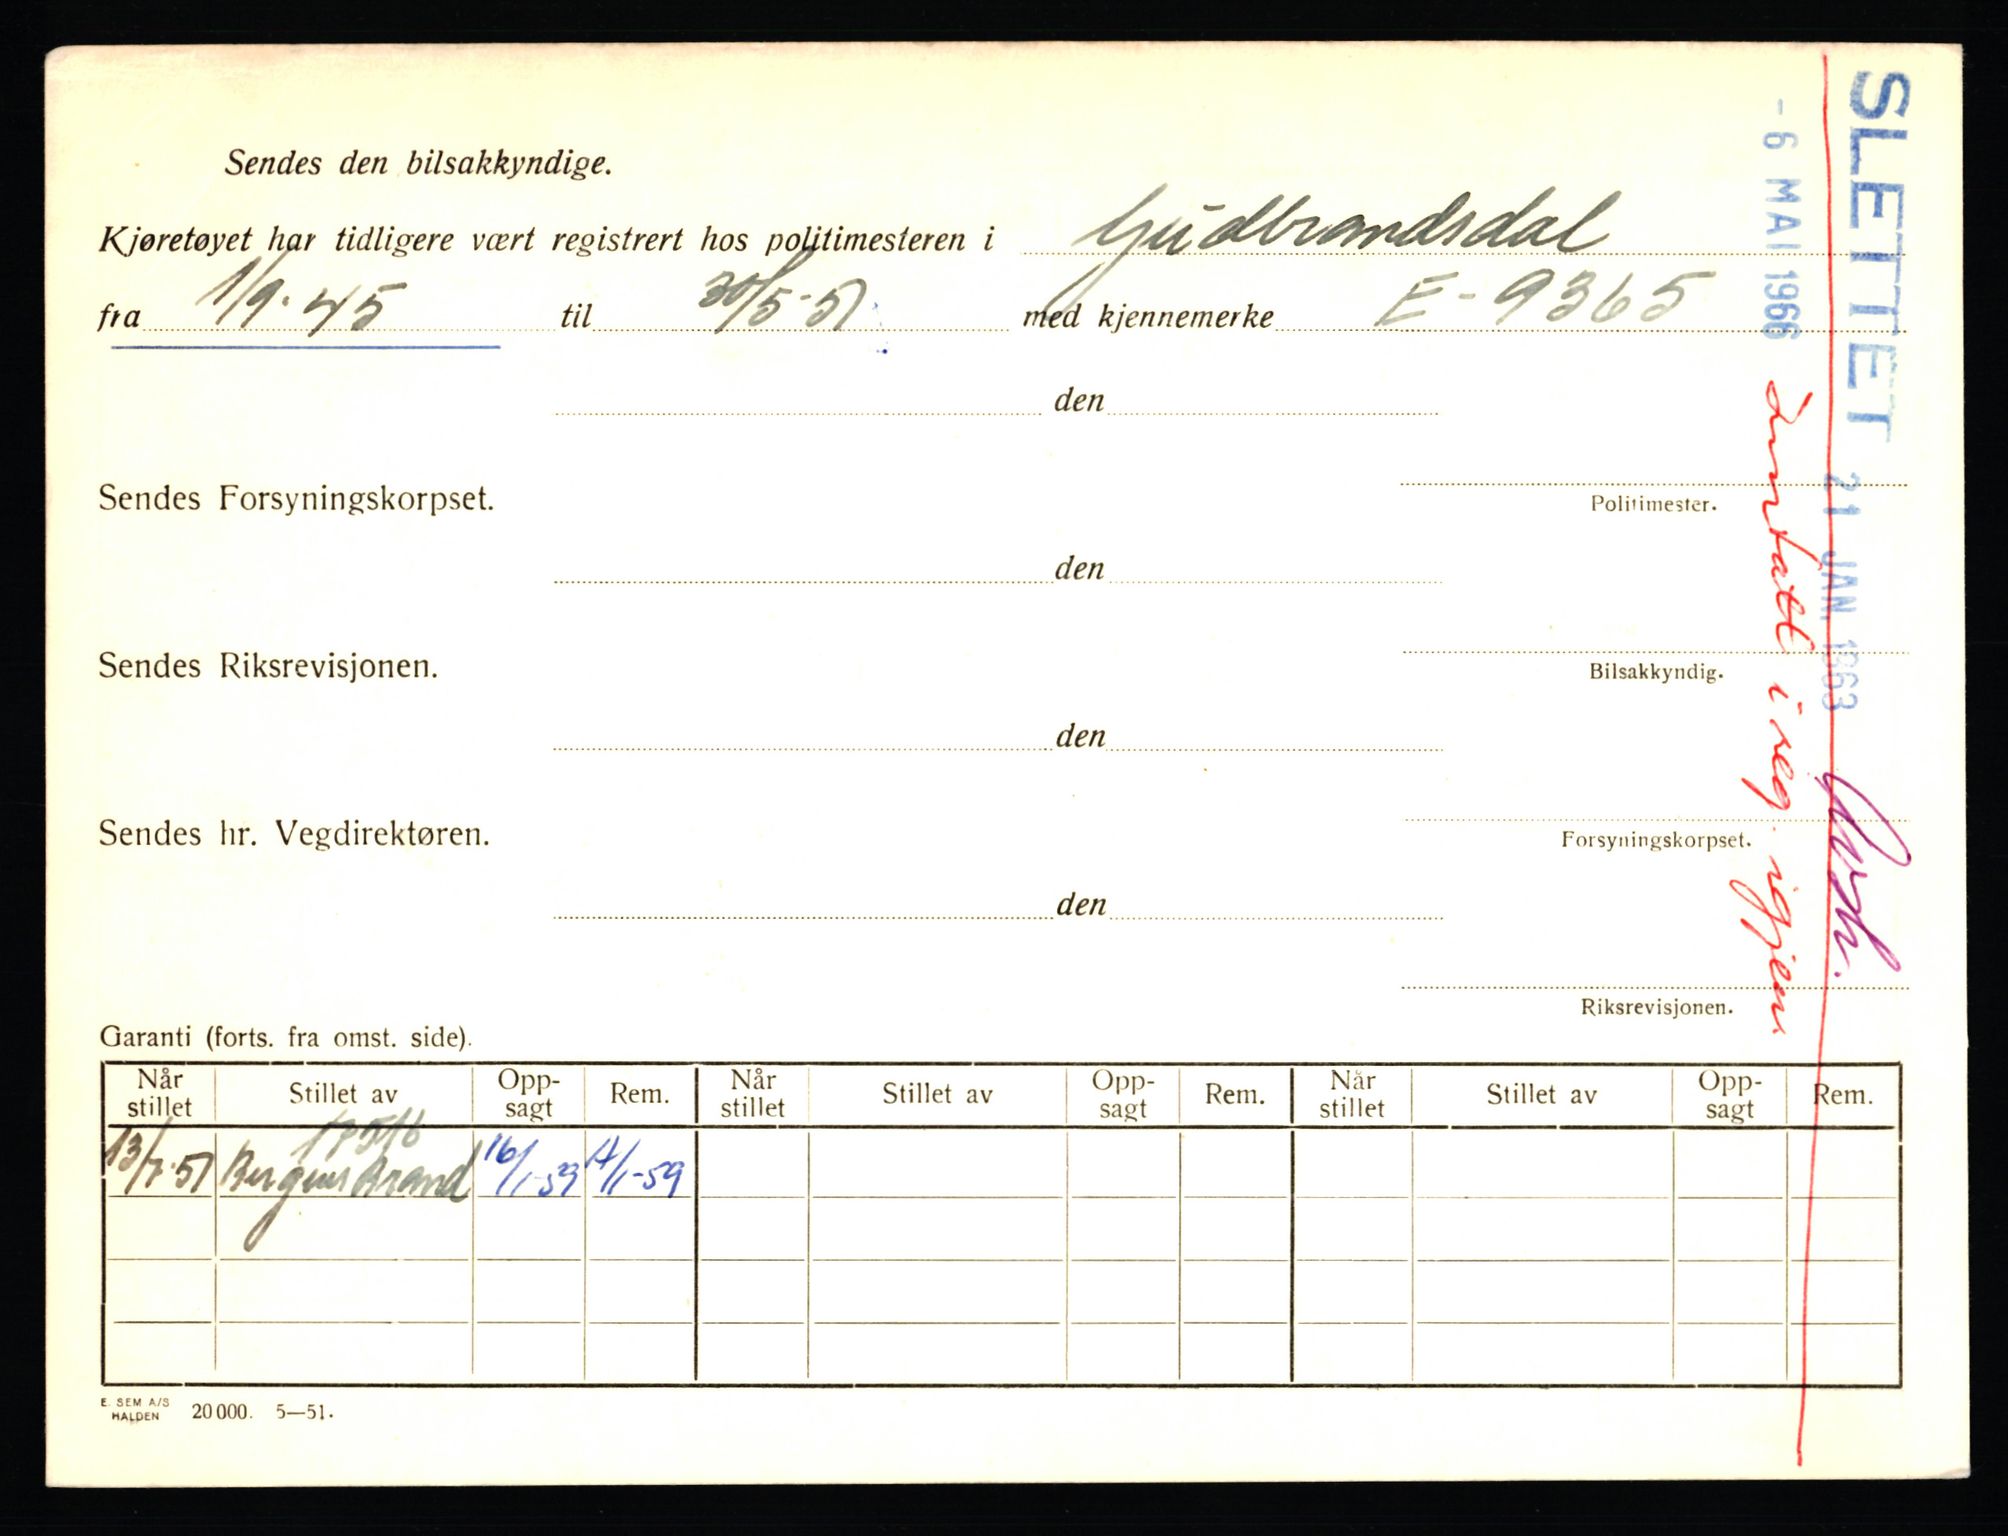 Sendes den bilsakkyndige.
Kjøretøyet har tidligere vært registrert hos politimesteren i Gudbrandsdal
fra 1/9-45 til 30/5-51 med kjennemerke E-9365
den
Sendes Forsyningskorpset.
Politimester.
den
Sendes Riksrevisjonen.
Bilsakkyndig.
den
Sendes hr. Vegdirektøren.
Forsyningskorpset.
den
Riksrevisjonen.
Garanti (forts. fra omst. side).
Når stillet Stillet av Opp-sagt Rem. Når stillet Stillet av Opp-sagt Rem. Når stillet Stillet av Opp-sagt Rem.
13/7-51 Bergens Brand 16/1-59 14/1-59
E. SEM A/S
HALDEN 20 000. 5—51.
SLETTET 21 JAN 1963
- 6 MAI 1966
Inntatt i reg. igjen